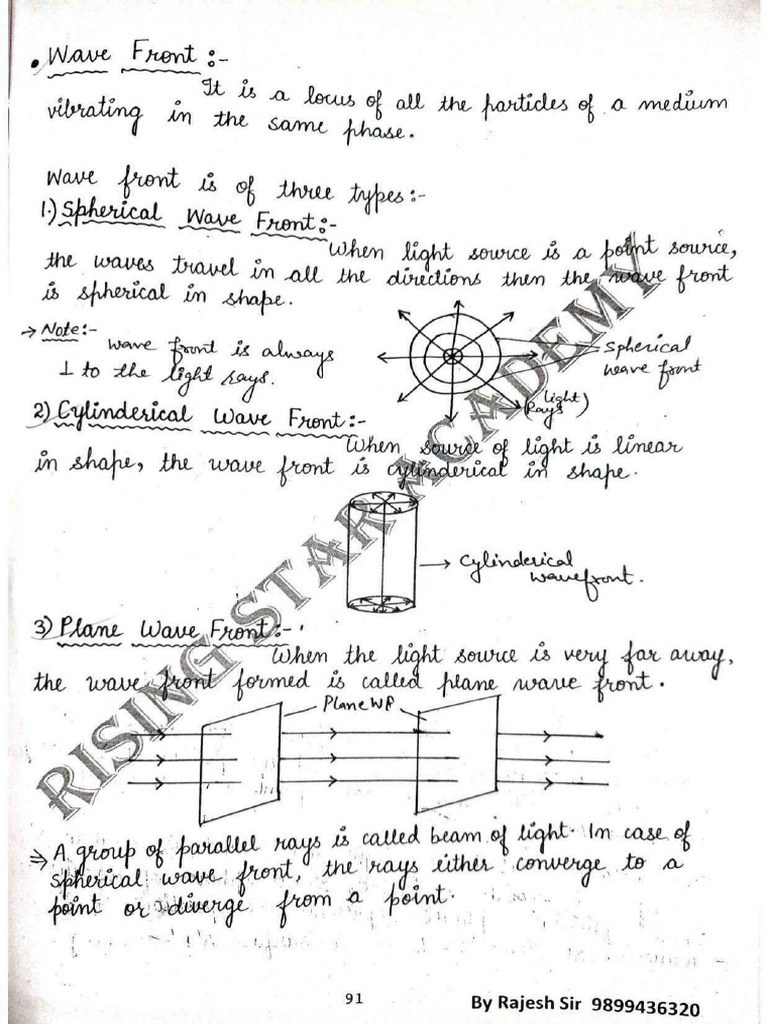 • Wave Front :-
It is a locus of all the particles of a medium
vibrating in the same phase.
Wave front is of three types :-
1.) Spherical Wave Front:-
When light source is a point source,
the waves travel in all the directions then the wave front
is spherical in shape.
→ Note:-
Wave front is always
⊥ to the light rays.
Spherical
wave front
(light
Rays)
2) Cylinderical Wave Front:-
When source of light is linear
in shape, the wave front is cylinderical in shape.
→ Cylinderical
wavefront.
3) Plane Wave Front:-
When the light source is very far away,
the wave front formed is called plane wave front.
Plane WF
⇒ A group of parallel rays is called beam of light. In case of
spherical wave front, the rays either converge to a
point or diverge from a point.
RISING STAR ACADEMY
91
By Rajesh Sir 9899436320